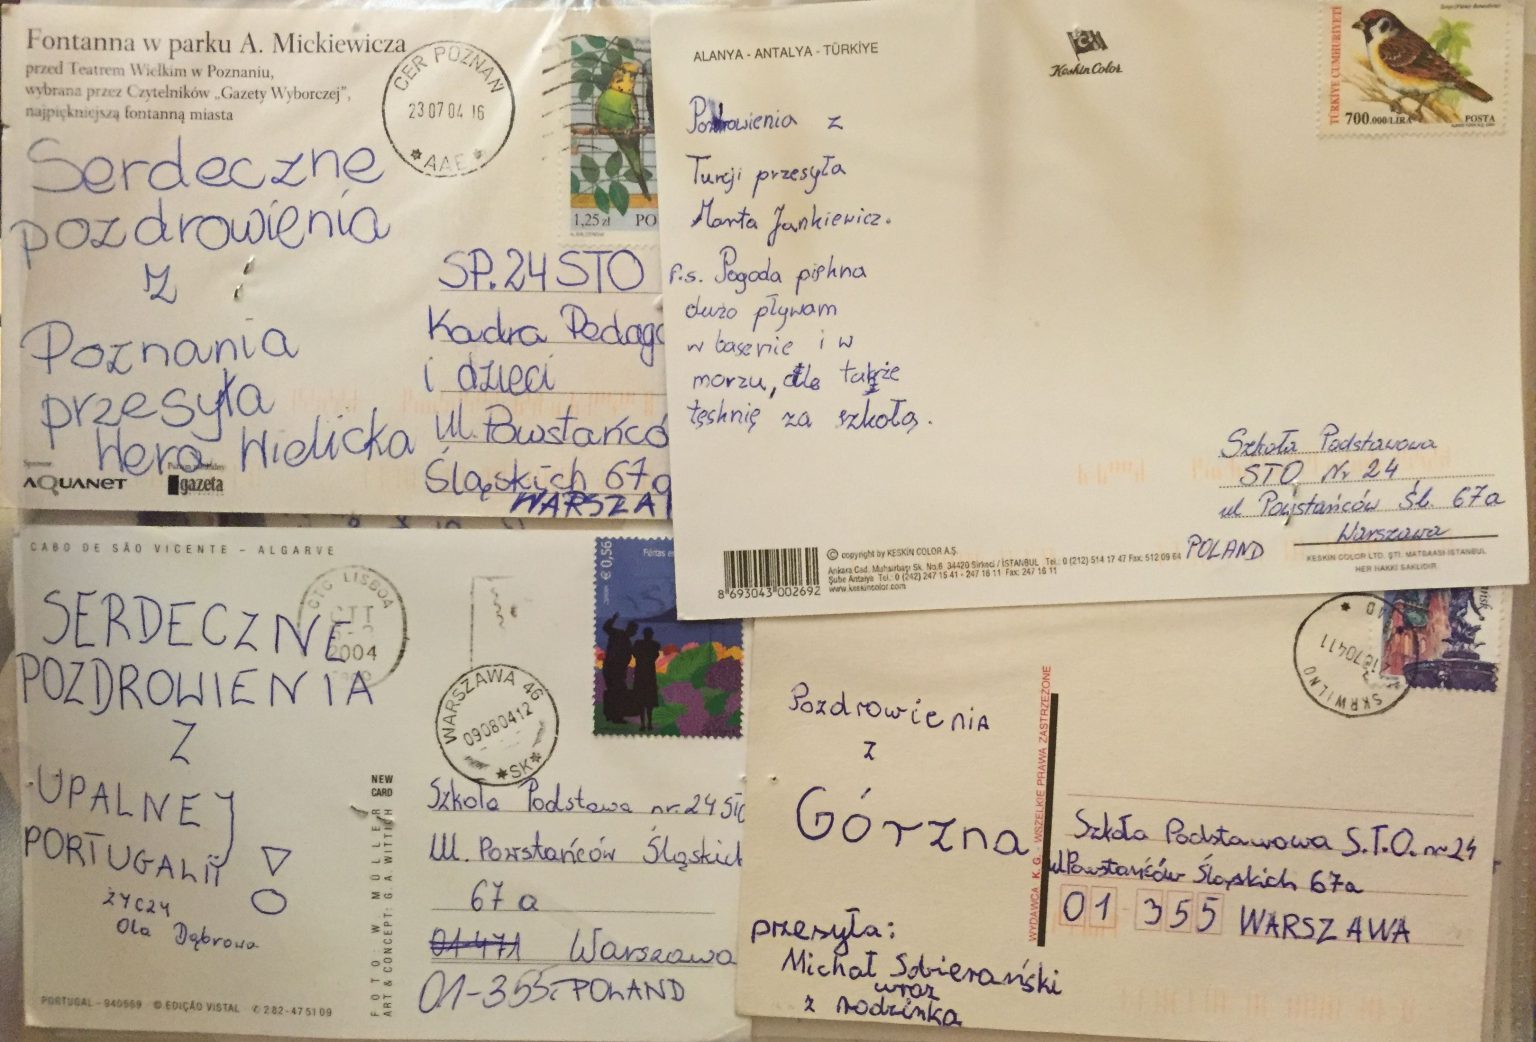 Fontanna w parku A. Mickiewicza
przed Teatrem Wielkim w Poznaniu,
wybrana przez Czytelników „Gazety Wyborczej”,
najpiękniejszą fontanną miasta
CER POZNAŃ
23 07 04 16
* AAE *
1,25 zł PO
Serdeczne
pozdrowienia
z
Poznania
przesyła
Wera Wielicka
Sponsor:
AQUANET
gazeta
SP. 24 STO
Kadra Pedago
i dzieci
ul. Powstańcó
Śląskich 67a
WARSZA
ALANYA - ANTALYA - TÜRKİYE
Keskin Color
TÜRKİYE CUMHURİYETİ
700.000/LİRA
POSTA
Pozdrowienia z
Turcji przesyła
Marta Jankiewicz.
P.s. Pogoda piękna
dużo pływam
w basenie i w
morzu, ale także
tęsknię za szkołą.
Szkoła Podstawowa
STO Nr 24
ul Powstańców Śl. 67a
Warszawa
POLAND
8 693043 002692
© copyright by KESKİN COLOR A.Ş.
Ankara Cad. Muhsirbaşı Sk. No.6 34420 Sirkeci / İSTANBUL Tel.: 0 (212) 514 17 47 Fax: 512 09 64
Şube Antalya Tel.: 0 (242) 247 15 41 - 247 16 11 Fax: 247 16 11
www.keskincolor.com
KESKIN COLOR LTD. ŞTİ. MATBAASI-İSTANBUL
HER HAKKI SAKLIDIR
CABO DE SÃO VICENTE – ALGARVE
CTC LISBOA
CTT
2004
WARSZAWA 46
09080412
*SK*
€ 0,56
SERDECZNE
POZDROWIENIA
Z
UPALNEJ
PORTUGALII
ŻYCZY
Ola Dąbrowa
NEW
CARD
FOTO: W. MÜLLER
ART & CONCEPT: G.A. WITTICH
Szkoła Podstawa nr. 24 STO
Ul. Powstańców Śląskich
67 a
01-471 Warszawa
01-355 POLAND
PORTUGAL – 940569 © EDIÇÃO VISTAL - ✆ 282-475109
SKRWILNO
Pozdrowienia
z
Górzna
przesyła:
Michał Sobierański
wraz
z rodzinką
WYDAWCA K. G. - WSZELKIE PRAWA ZASTRZEŻONE
Szkoła Podstawowa S.T.O. nr 24
ul Powstańców Śląskich 67a
01 355 WARSZAWA